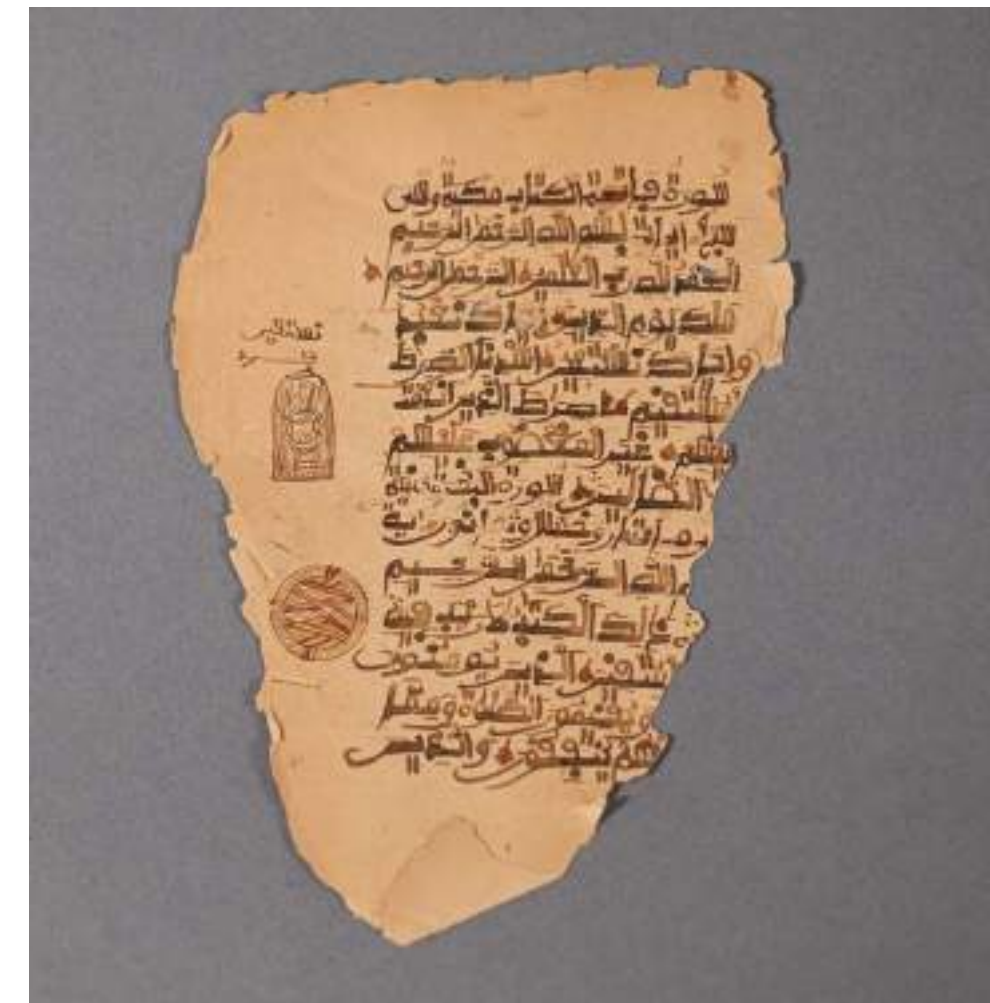 سورة فاتحة الكتاب مكية وهي
سبع ايات بسم الله الرحمن الرحيم
الحمد لله رب العلمين الرحمن الرحيم
ملك يوم الدين اياك نعبد
واياك نستعين اهدنا الصرط
المستقيم صراط الذين انعمت
عليهم غير المغضوب عليهم
الضالين سورة البقرة مدنية
الله الرحمن الرحيم
ذلك الكتب لا ريب فيه
للمتقين الذين يومنون
ويقيمون الصلوة ومما
هم ينفقون والذين